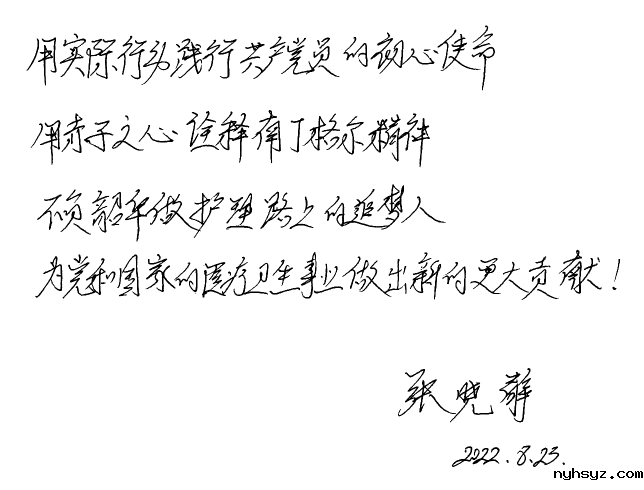 用实际行动践行共产党员的初心使命
用赤子之心诠释南丁格尔精神
不负韶华做护理路上的追梦人
为党和国家的医疗卫生事业做出新的更大贡献！
张晓静
2022.8.23.
nyhsyz.com